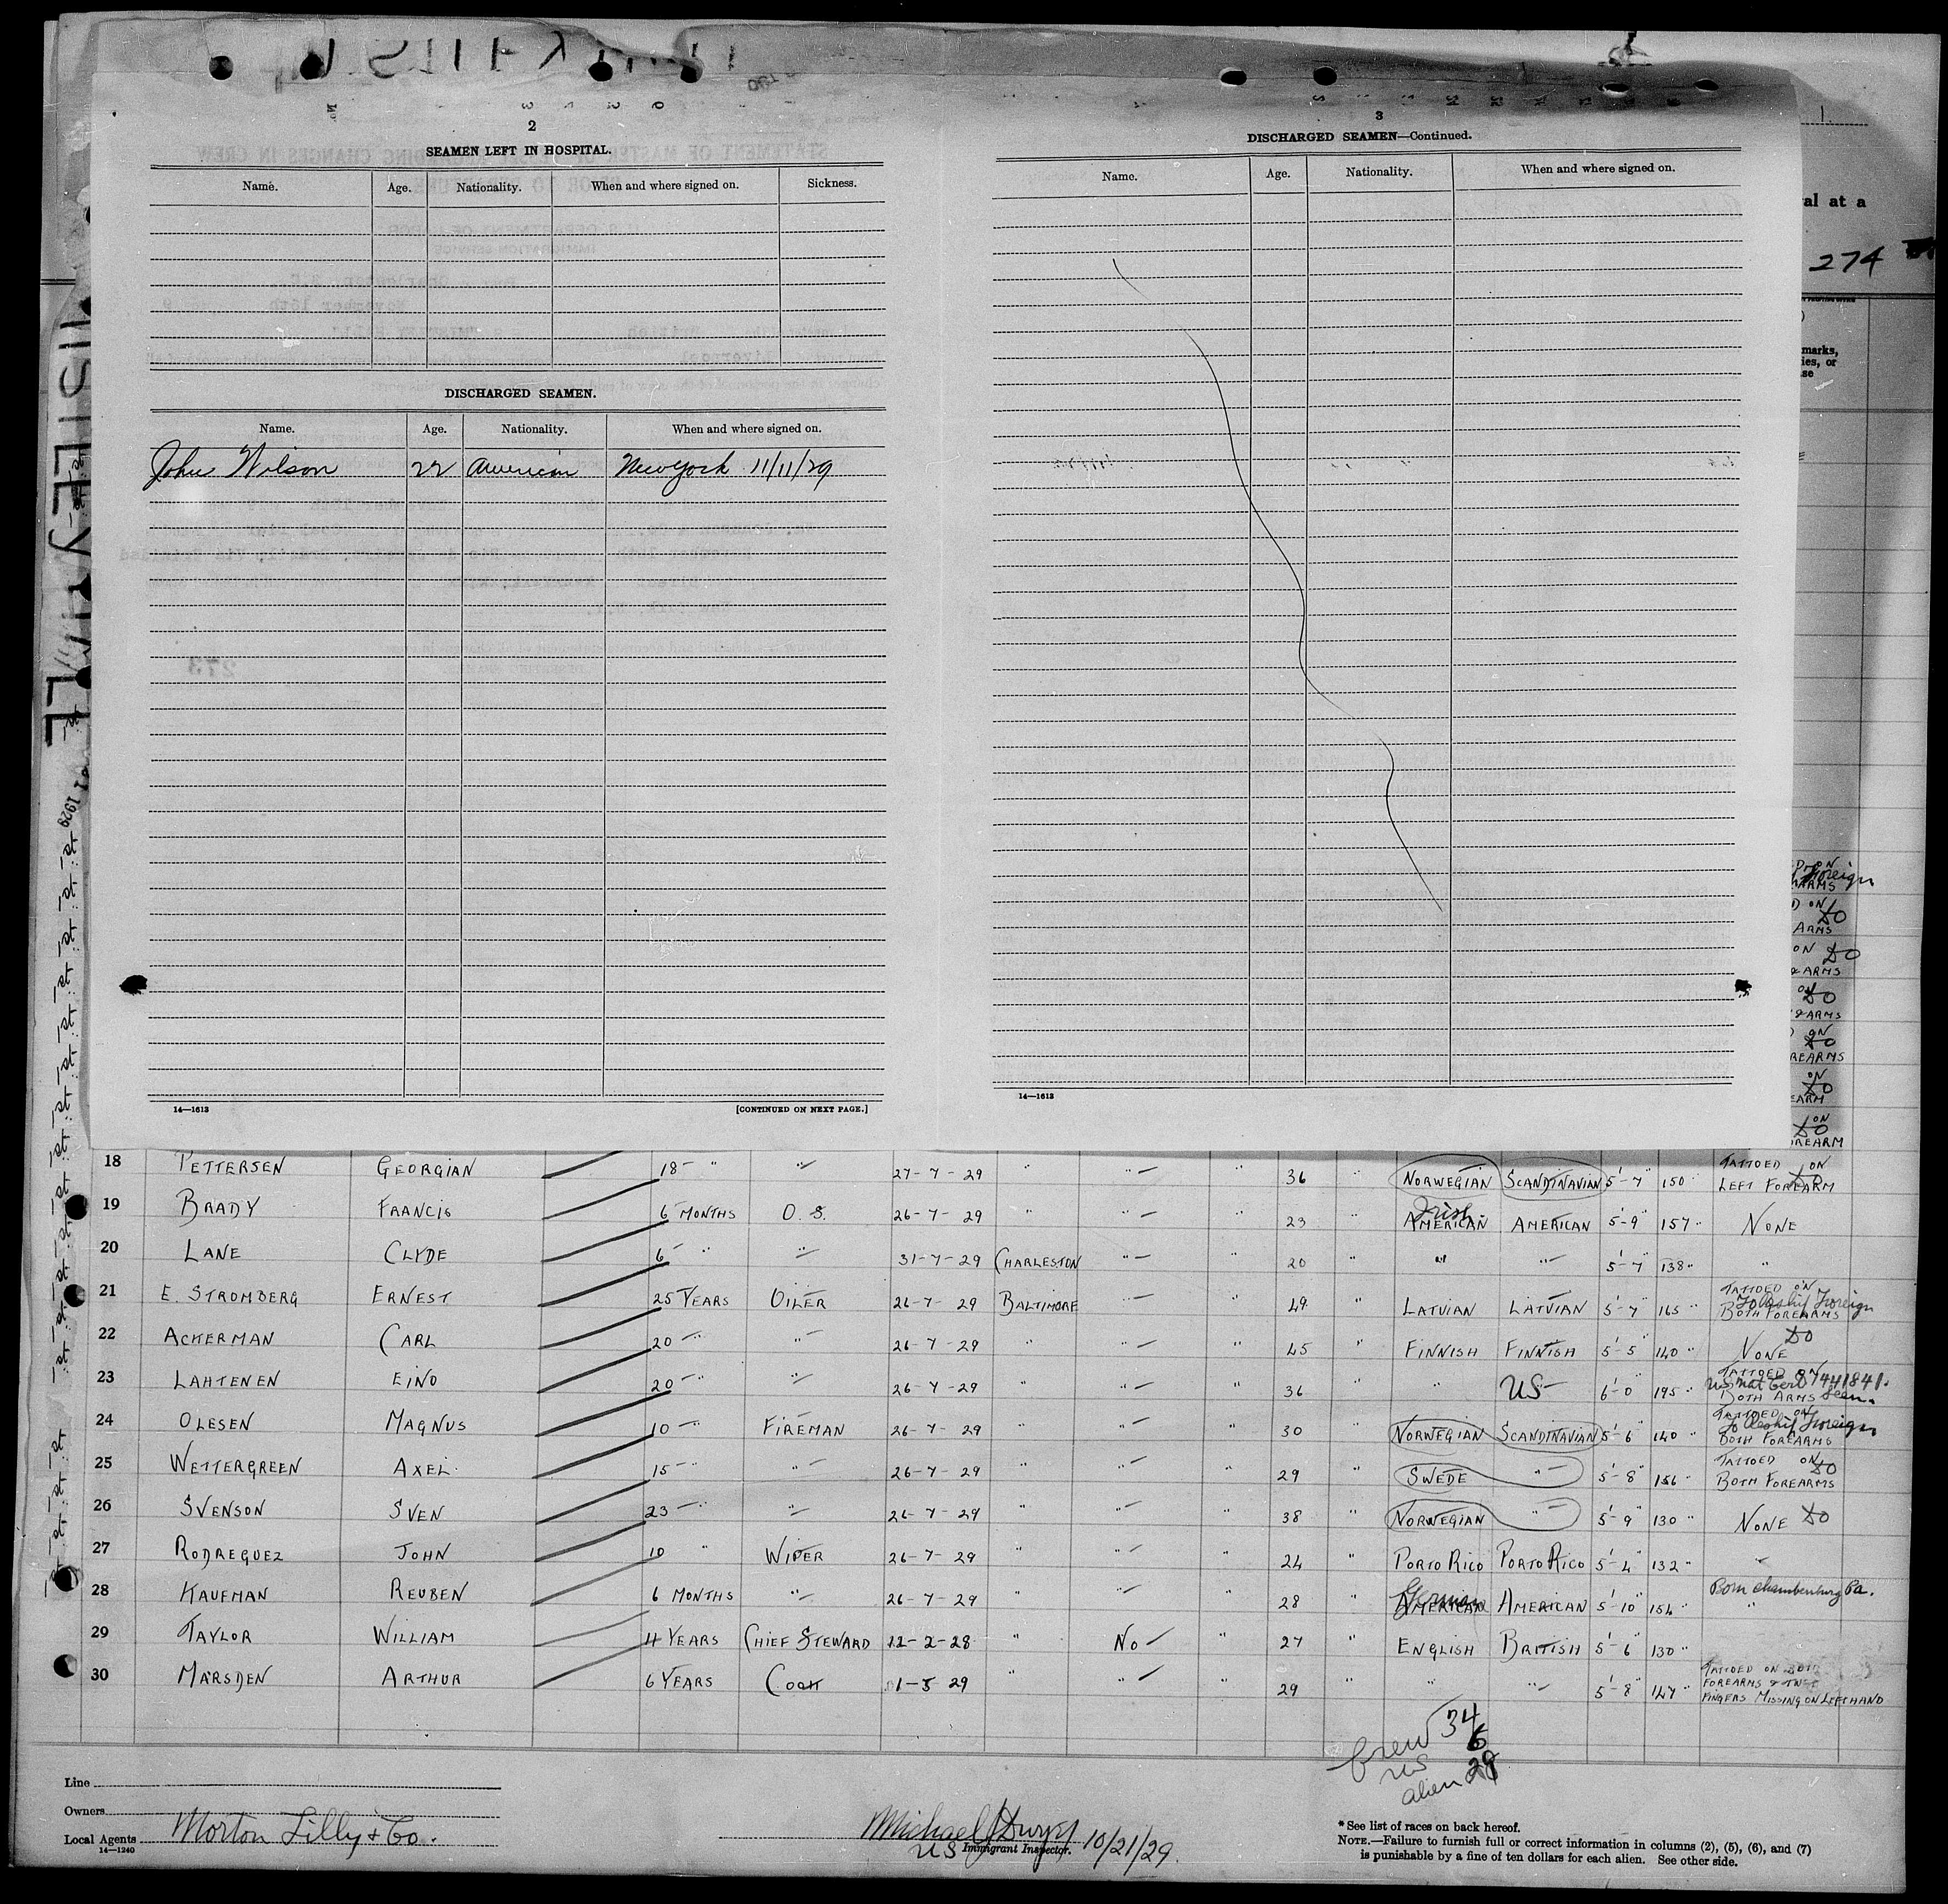 2
SEAMEN LEFT IN HOSPITAL.
Name. Age. Nationality. When and where signed on. Sickness.
DISCHARGED SEAMEN.
Name. Age. Nationality. When and where signed on.
John Wilson 22 American New York 11/11/29
14—1613 [CONTINUED ON NEXT PAGE.]
3
DISCHARGED SEAMEN—Continued.
Name. Age. Nationality. When and where signed on.
14—1613
al at a
274
marks,
ies, or
se
Foreign
ARMS
ON DO
ARMS
ON DO
& ARMS
ON DO
& ARMS
ON DO
REARMS
ON DO
EARM
ON DO
OREARM
18 PETTERSEN GEORGIAN 18 - " " 27-7-29 " " " 36 " NORWEGIAN SCANDINAVIAN 5'-7" 150 TATTOED ON LEFT FOREARM DO
19 BRADY FRANCIS 6 MONTHS O.S. 26-7-29 " " " 23 " Irish AMERICAN AMERICAN 5'-9" 157 " NONE
20 LANE CLYDE 6 - " " 31-7-29 CHARLESTON " " 20 " " " 5'-7" 138 " "
21 E. STROMBERG ERNEST 25 YEARS OILER 26-7-29 BALTIMORE " " 49 " LATVIAN LATVIAN 5'-7" 165 " TATTOED ON BOTH FOREARMS Foreign
22 ACKERMAN CARL 20 - " " 26-7-29 " " " 45 " FINNISH FINNISH 5'-5" 140 " NONE DO
23 LAHTENEN EINO 20 - " " 26-7-29 " " " 36 " " US 6'-0" 195 " TATTOED ON BOTH ARMS US Nat Cert 1441841. Seen.
24 OLESEN MAGNUS 10 - " FIREMAN 26-7-29 " " " 30 " NORWEGIAN SCANDINAVIAN 5'-6" 140 " TATTOED ON BOTH FOREARMS Foreign
25 WETTERGREEN AXEL 15 - " " 26-7-29 " " " 29 " SWEDE " 5'-8" 156 " TATTOED ON BOTH FOREARMS DO
26 SVENSON SVEN 23 - " " 26-7-29 " " " 38 " NORWEGIAN " 5'-9" 130 " NONE DO
27 RODREGUEZ JOHN 10 " WIPER 26-7-29 " " " 24 " PORTO RICO PORTO RICO 5'-4" 132 " "
28 KAUFMAN REUBEN 6 MONTHS " 26-7-29 " " " 28 " German AMERICAN AMERICAN 5'-10" 154 " Born Chambersburg Pa.
29 TAYLOR WILLIAM 4 YEARS CHIEF STEWARD 12-2-28 " NO " 27 " ENGLISH BRITISH 5'-6" 130 "
30 MARSDEN ARTHUR 6 YEARS COOK 1-5-29 " " " 29 " " " 5'-8" 147 " TATTOED ON BOTH FOREARMS & TWO FINGERS MISSING ON LEFT HAND
Crew 34
US 6
alien 29
Line
Owners
Local Agents Morton Lilly & Co.
14—1240
US Immigrant Inspector. 10/21/29.
* See list of races on back hereof.
NOTE.—Failure to furnish full or correct information in columns (2), (5), (6), and (7)
is punishable by a fine of ten dollars for each alien. See other side.